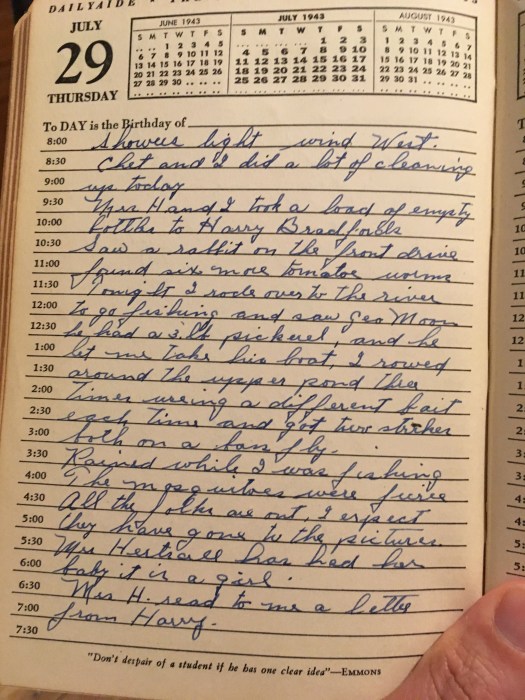 DAILYAIDE
JULY
29
THURSDAY
JUNE 1943
S M T W T F S
.. .. 1 2 3 4 5
6 7 8 9 10 11 12
13 14 15 16 17 18 19
20 21 22 23 24 25 26
27 28 29 30 .. .. ..
JULY 1943
S M T W T F S
.. .. .. .. 1 2 3
4 5 6 7 8 9 10
11 12 13 14 15 16 17
18 19 20 21 22 23 24
25 26 27 28 29 30 31
AUGUST 1943
S M T W T F S
1 2 3 4 5 6 7
8 9 10 11 12 13 14
15 16 17 18 19 20 21
22 23 24 25 26 27 28
29 30 31 .. .. .. ..
To DAY is the Birthday of
8:00 Showers light wind West.
8:30 Chet and I did a lot of cleaning
9:00 up today
9:30 Mrs H and I took a load of empty
10:00 bottles to Harry Bradfords
10:30 Saw a rabbit on the front drive
11:00 found six more tomatoe worms
11:30 Tonight I rode over to the river
12:00 to go fishing and saw Geo Moon
12:30 he had a 3 lb pickerel, and he
1:00 let me take his boat, I rowed
1:30 around the upper pond three
2:00 times useing a different bait
2:30 each time and got two strikes
3:00 both on a bass fly.
3:30 Rained while I was fishing
4:00 The mosquitoes were fierce
4:30 All the folks are out, I expect
5:00 they have gone to the pictures.
5:30 Mrs has had her
6:00 baby it is a girl.
6:30 Mrs H. read to me a letter
7:00 from Harry.
7:30
"Don't despair of a student if he has one clear idea"—EMMONS